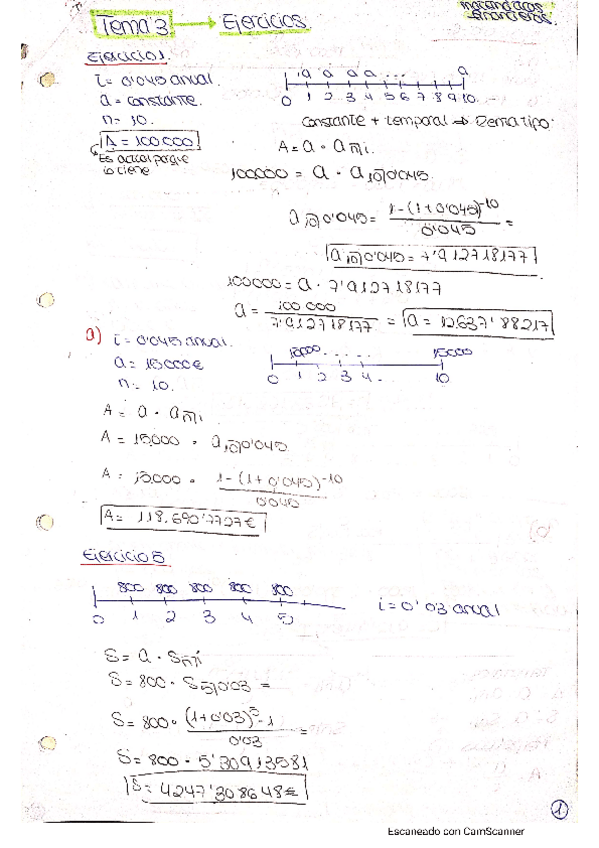 Tema 3 → Ejercicios.
matemáticas financieras.
Ejercicio 1.
i = 0'045 anual.
a = constante.
n = 10.
A = 100000
Es actual porque lo tiene
a a a a ... a
0 1 2 3 4 5 6 7 8 9 10
constante + temporal ⇒ Renta tipo.
A = a · a n̅| i.
100000 = a · a 10̅| 0'045.
a 10̅| 0'045 = 1-(1+0'045)^-10 / 0'045 =
a 10̅| 0'045 = 7'912718177
100000 = a · 7'912718177
a = 100 000 / 7'912718177 = a = 12637'88217
a) i = 0'045 anual.
a = 15000€
n = 10.
15000 . . . . . 15000
0 1 2 3 4 . 10
A = a · a n̅| i.
A = 15.000 · a 10̅| 0'045
A = 15.000 · 1-(1+0'045)^-10 / 0'045
A = 118.690'7727€
Ejercicio 5
800 800 800 800 800
0 1 2 3 4 5
i = 0'03 anual
S = a · S n̅| i
S = 800 · S 5̅| 0'03 =
S = 800 · (1+0'03)^5 - 1 / 0'03 =
S = 800 · 5'30913581
S = 4247'308648€
1
Escaneado con CamScanner